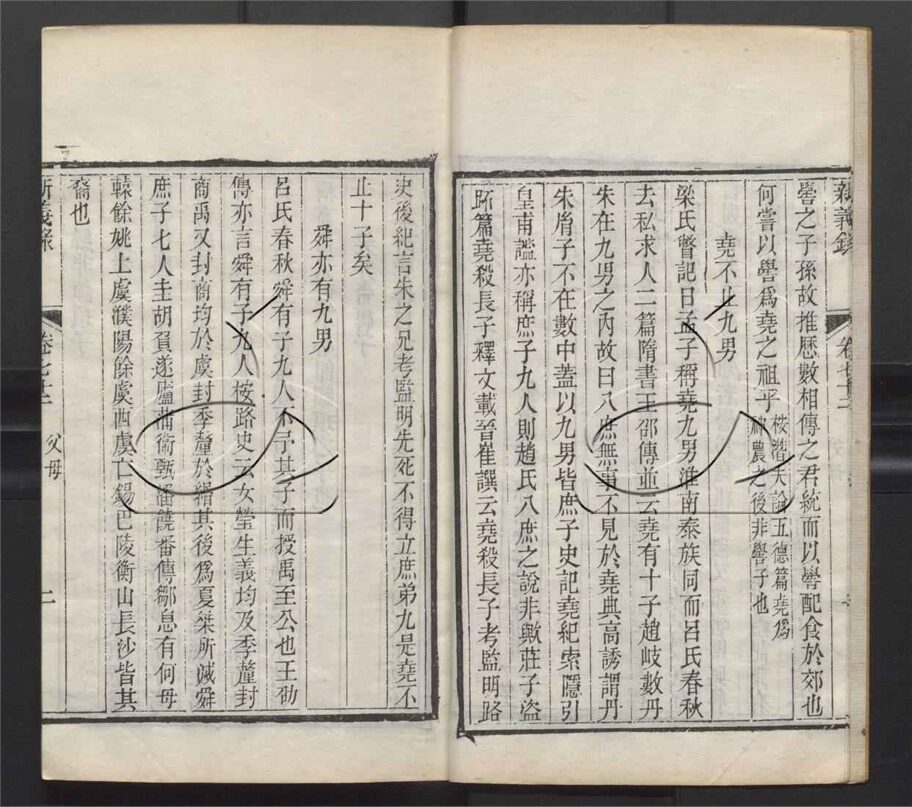 新義錄
卷七十二
嚳之子孫故推曆數相傳之君統而以嚳配食於郊也
何嘗以嚳爲堯之祖乎
按潛夫論五德篇堯爲
神農之後非嚳子也
堯不止九男
梁氏瞥記曰孟子稱堯九男淮南泰族同而呂氏春秋
去私求人二篇隋書王邵傳並云堯有十子趙岐數丹
朱在九男之內故曰八庶無事不見於堯典高誘謂丹
朱胤子不在數中蓋以九男皆庶子史記堯紀索隱引
皇甫謐亦稱庶子九人則趙氏八庶之說非歟莊子盜
跖篇堯殺長子釋文載晉崔譔云堯殺長子考監明路
史後紀言朱之兄考監明先死不得立庶弟九是堯不
止十子矣
舜亦有九男
呂氏春秋舜有子九人不予其子而授禹至公也王劭
傳亦言舜有子九人按路史云女瑩生義均及季釐封
商禹又封商均於虞封季釐於緡其後爲夏桀所滅舜
庶子七人圭胡負遂廬蒲衛甄潘饒番傅鄒息有何母
轅餘姚上虞濮陽餘虞西虞亡錫巴陵衡山長沙皆其
裔也
新義錄
卷七十二
父母
二